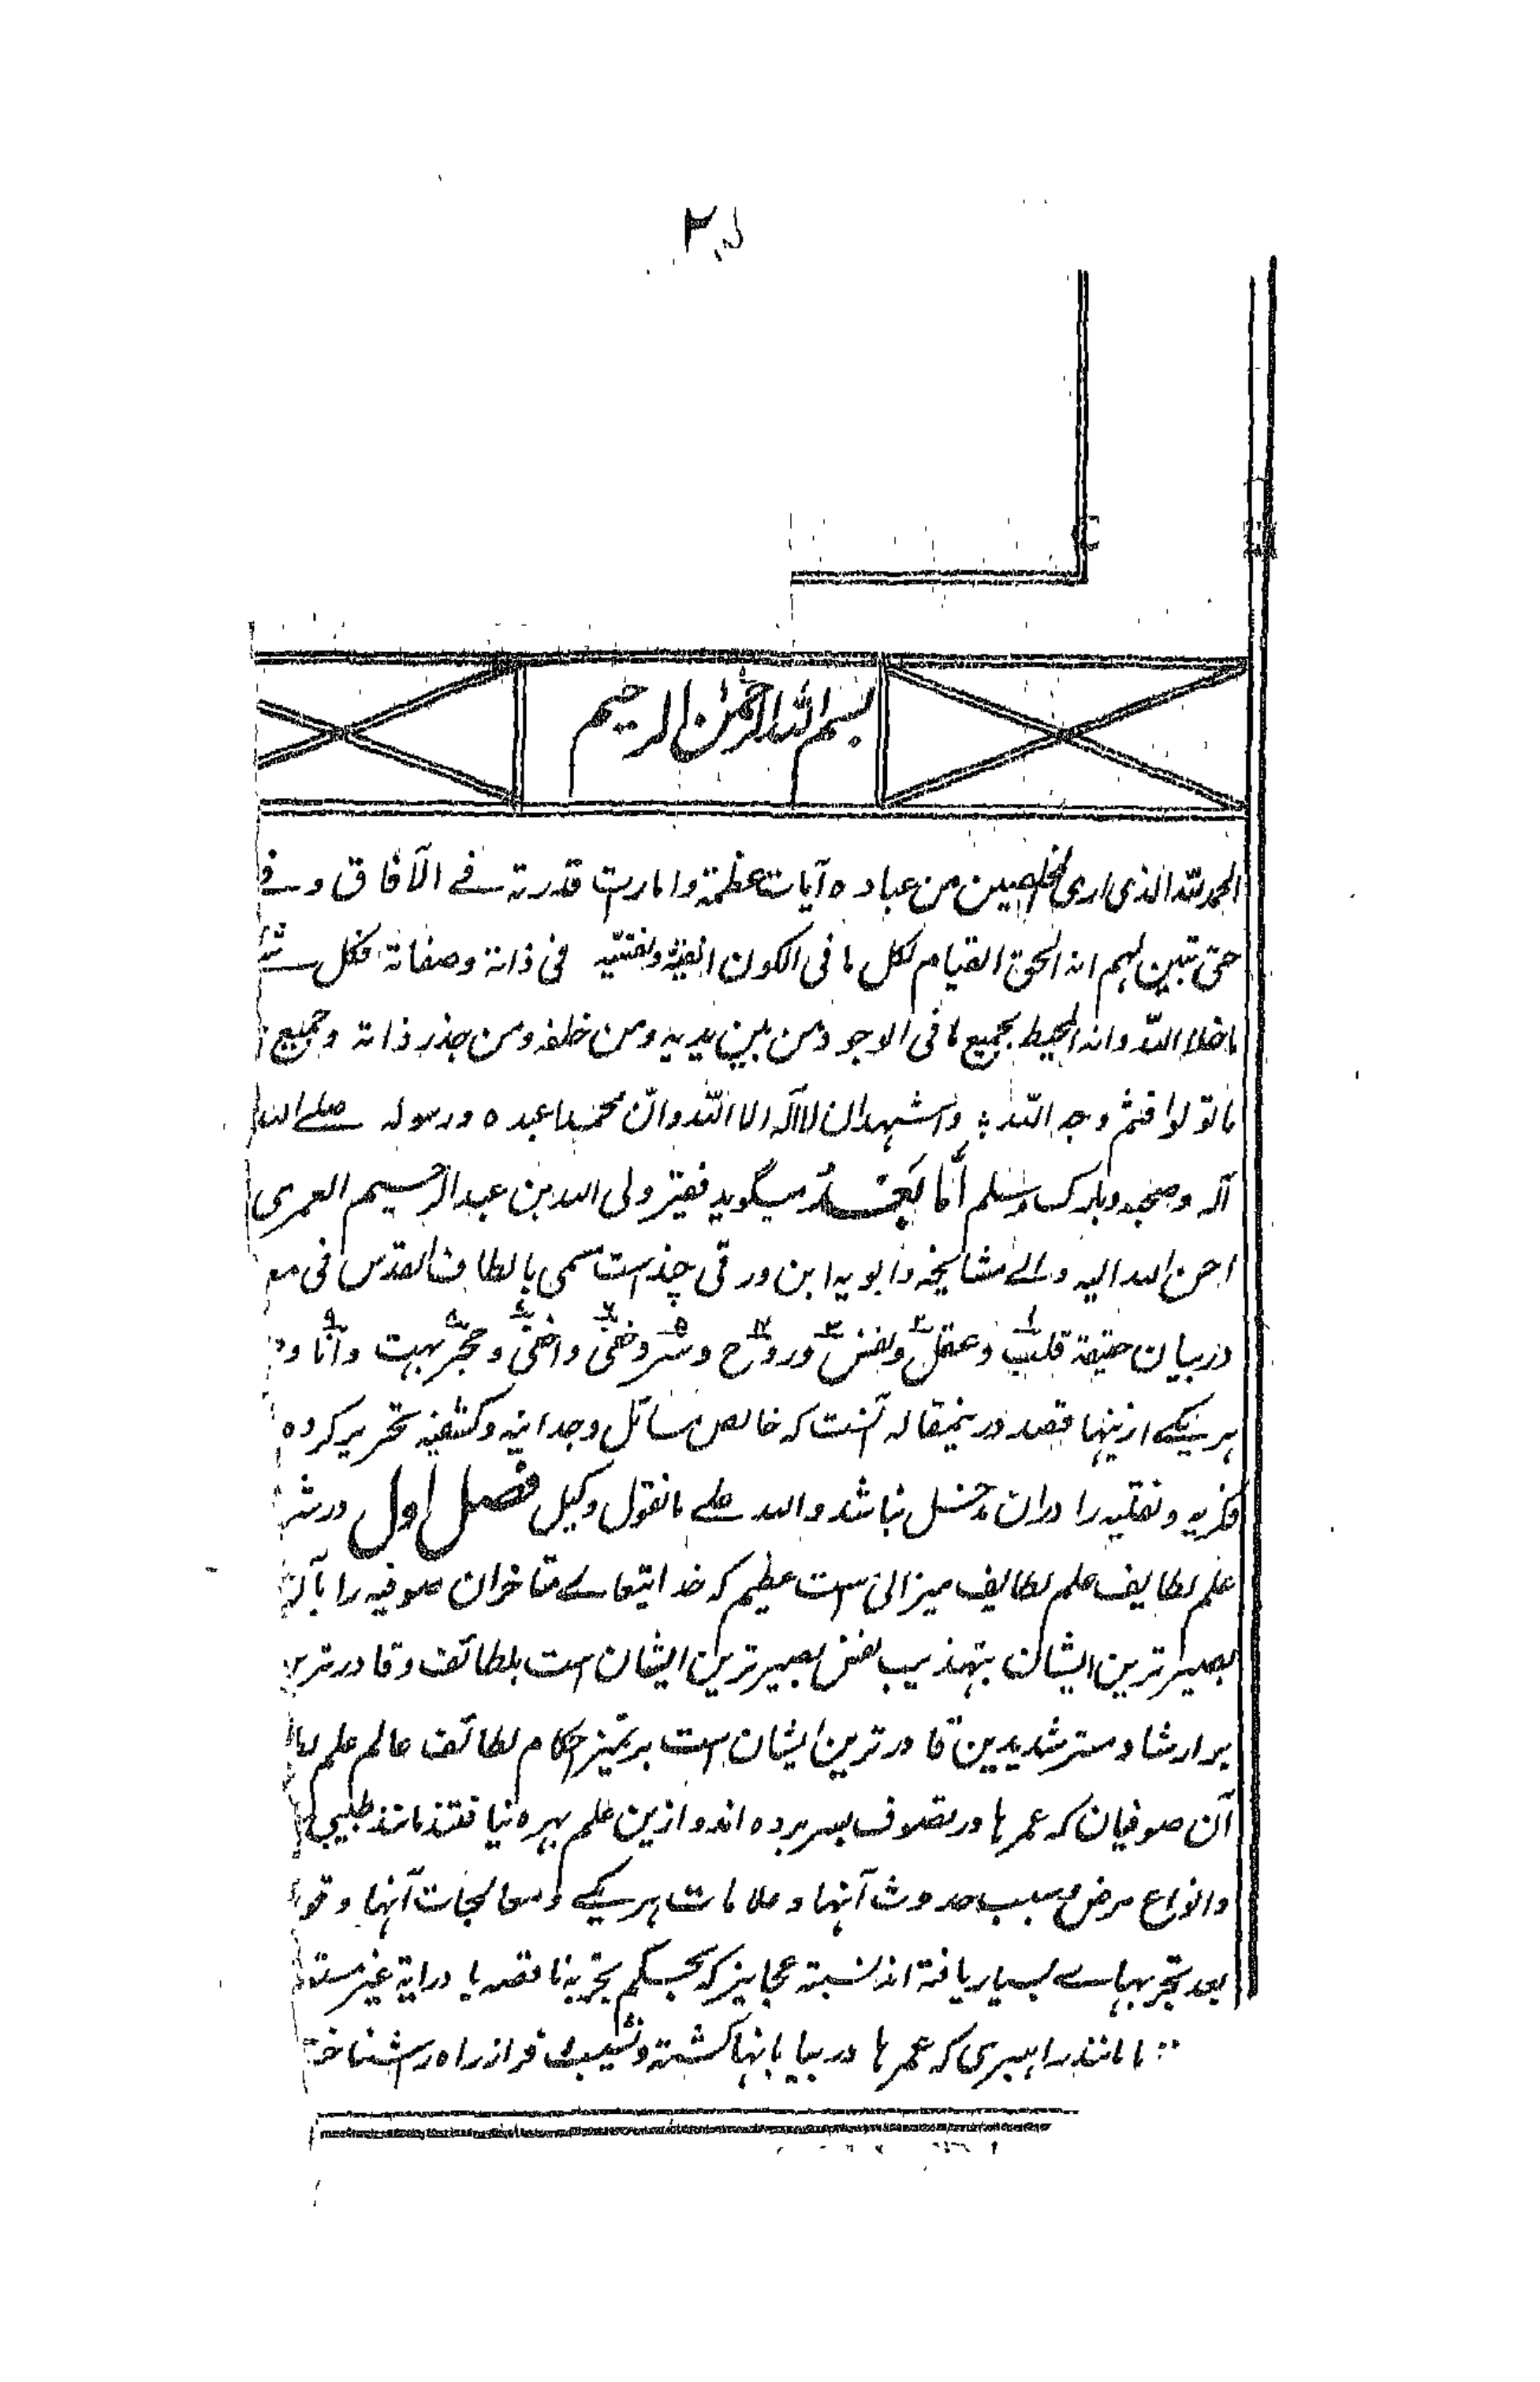 ۲
بسم الله الرحمن الرحیم
الحمد لله الذی اری المخلصین من عباده آیات عظمته وامارات قدرته فے الآفاق وفے
حتی تبین لهم انه الحق القیام لکل ما فی الکون انفیته ونفسیه فی ذاته وصفاته فکل شے
ما خلا الله وانه المحیط بجمیع ما فی الوجود من بین یدیه ومن خلفه ومن جذر ذاته وجمیع
ما تولوا فثم وجه الله واشهد ان لا اله الا الله وان محمدا عبده ورسوله صلے الله
آله وصحبه وبارک وسلم اما بعد میگوید فقیر ولی الله بن عبد الرحیم العمری
احسن الله الیه والے مشایخه وابویه این ورقی چند است مسمی بالطاف القدس فی مع
در بیان حقیقة قلب وعقل ونفس وروح وسر وخفی واخفی وحجر بهت وانا و
هر یکے ازینها قصد درینمقاله آنست که خالص مسائل وجدانیه وکشفیه تحریر کرده
فکریه ونقلیه را دران دخل نباشد والله علے ما نقول وکیل فصل اول در
علم لطایف علم لطایف میزانی ست عظیم که خدایتعالے متاخران صوفیه را بآن
بصیر ترین ایشان بتهذیب نفس بصیر ترین ایشان است بلطائف وقادر ترین
بر ارشاد مسترشدین قادر ترین ایشان است بر تمیز احکام لطائف عالم علم
آن صوفیان که عمرها در تصوف بسر برده اند وازین علم بهره نیافتند مانند طبیبی
وانواع مرض وسبب حدوث آنها وعلامات هر یکے ومعالجات آنها
بعد تجربهاے بسیار یافته اند نسبته عجایز که بحسب حکم تجربه ناقصه یا درایة غیر
یا مانند راهبری که عمرها در بیابانها گشته ونشیب وفراز راه را شناخت